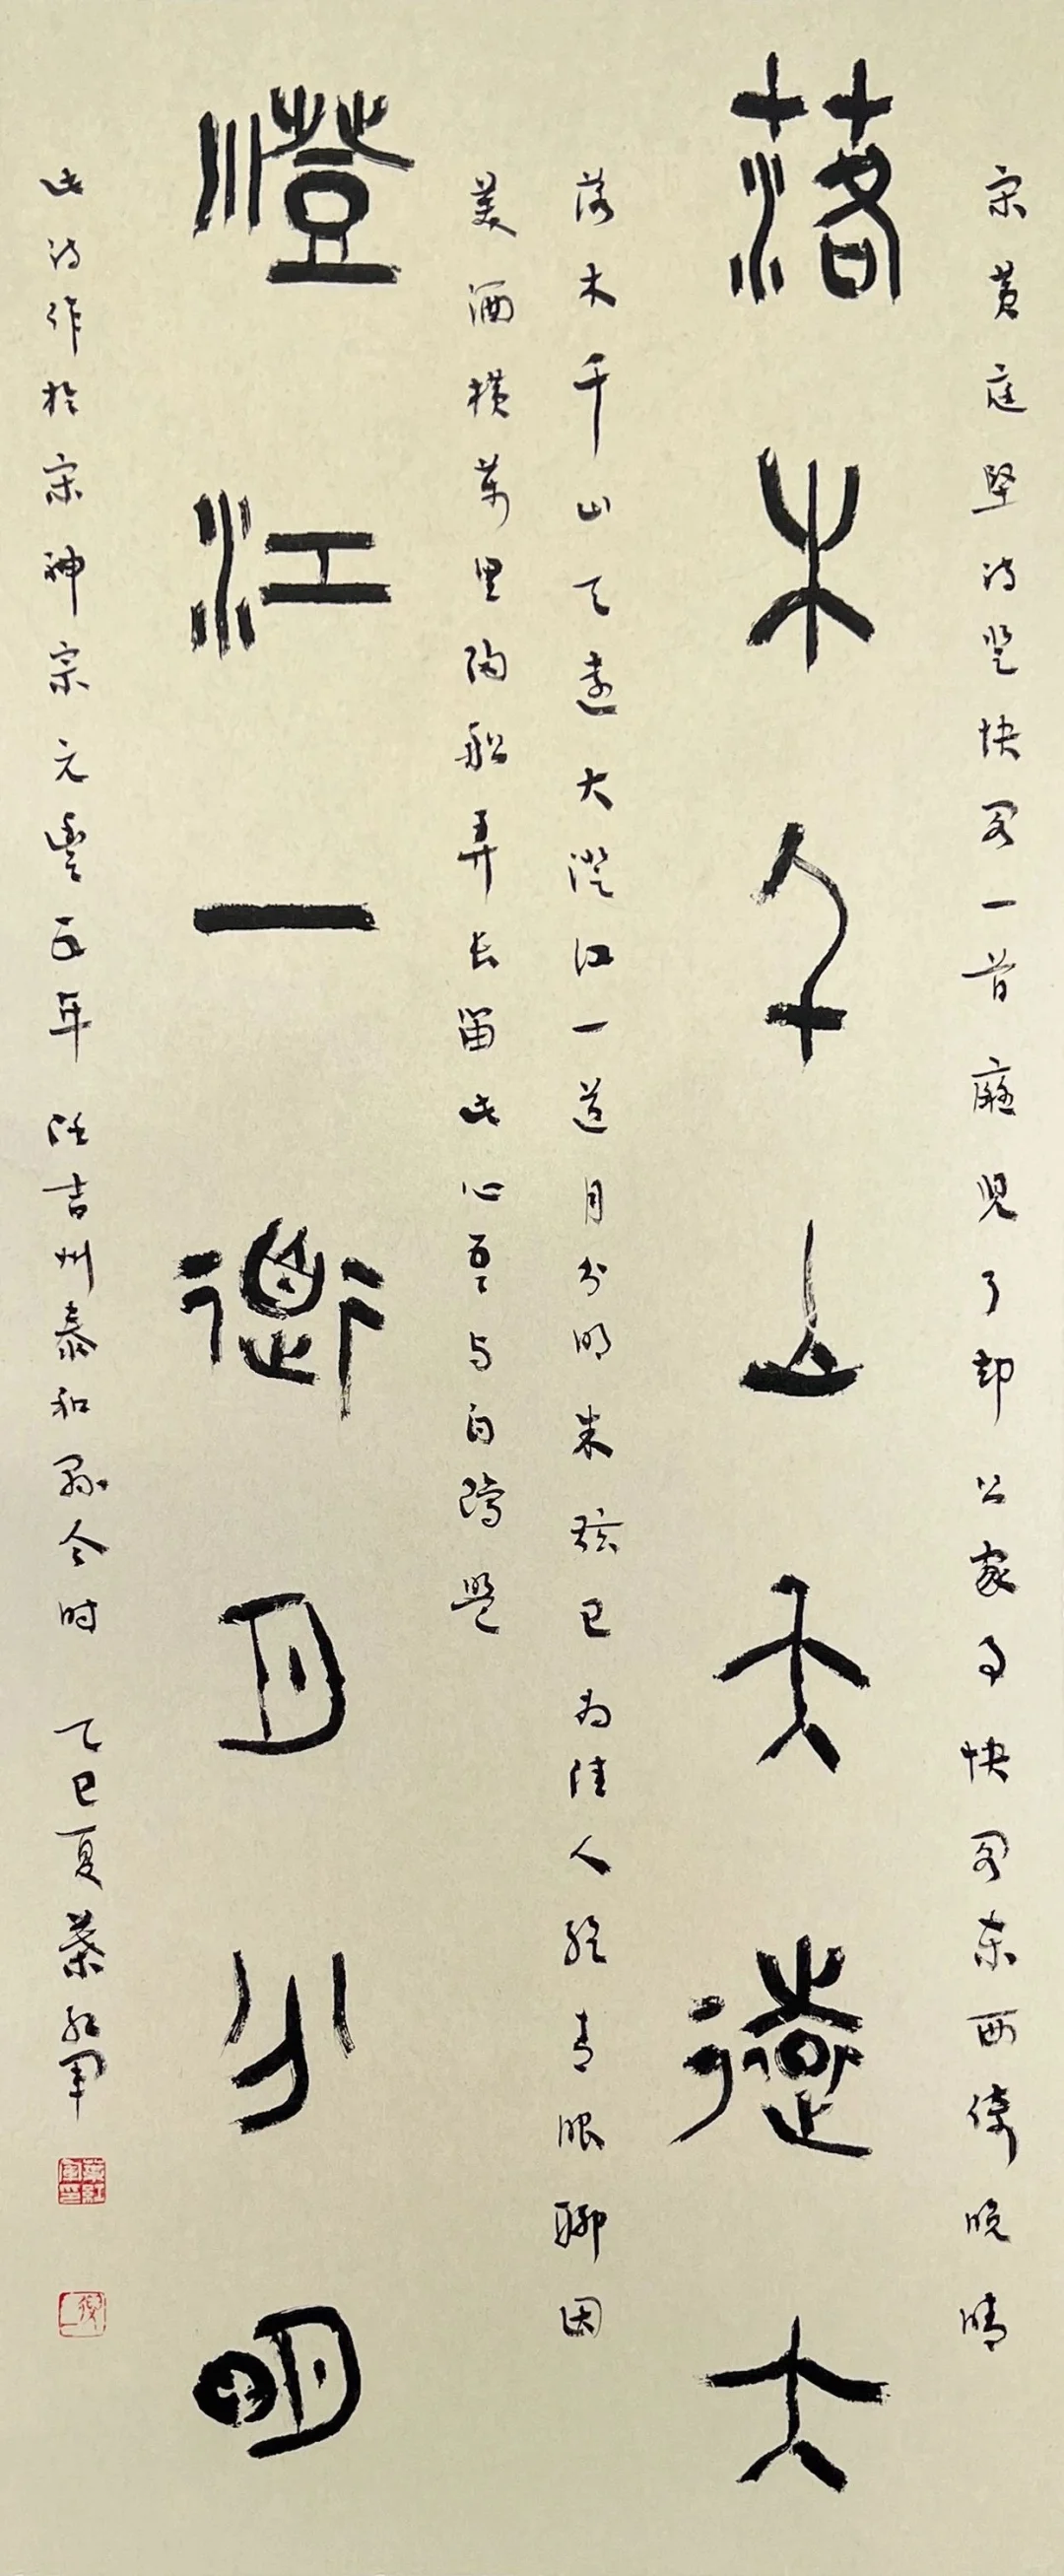 宋黄庭坚诗登快阁一首癡兒了却公家事快阁東西倚晚晴
落木千山天遠大
落木千山天遠大澄江一道月分明朱弦已为佳人絶青眼聊因
美酒横萬里歸船弄长笛此心吾与白鷗盟
澄江一道月分明
此诗作於宋神宗元豐五年 任吉州泰和縣令时 乙巳夏葉紅軍
葉紅軍印